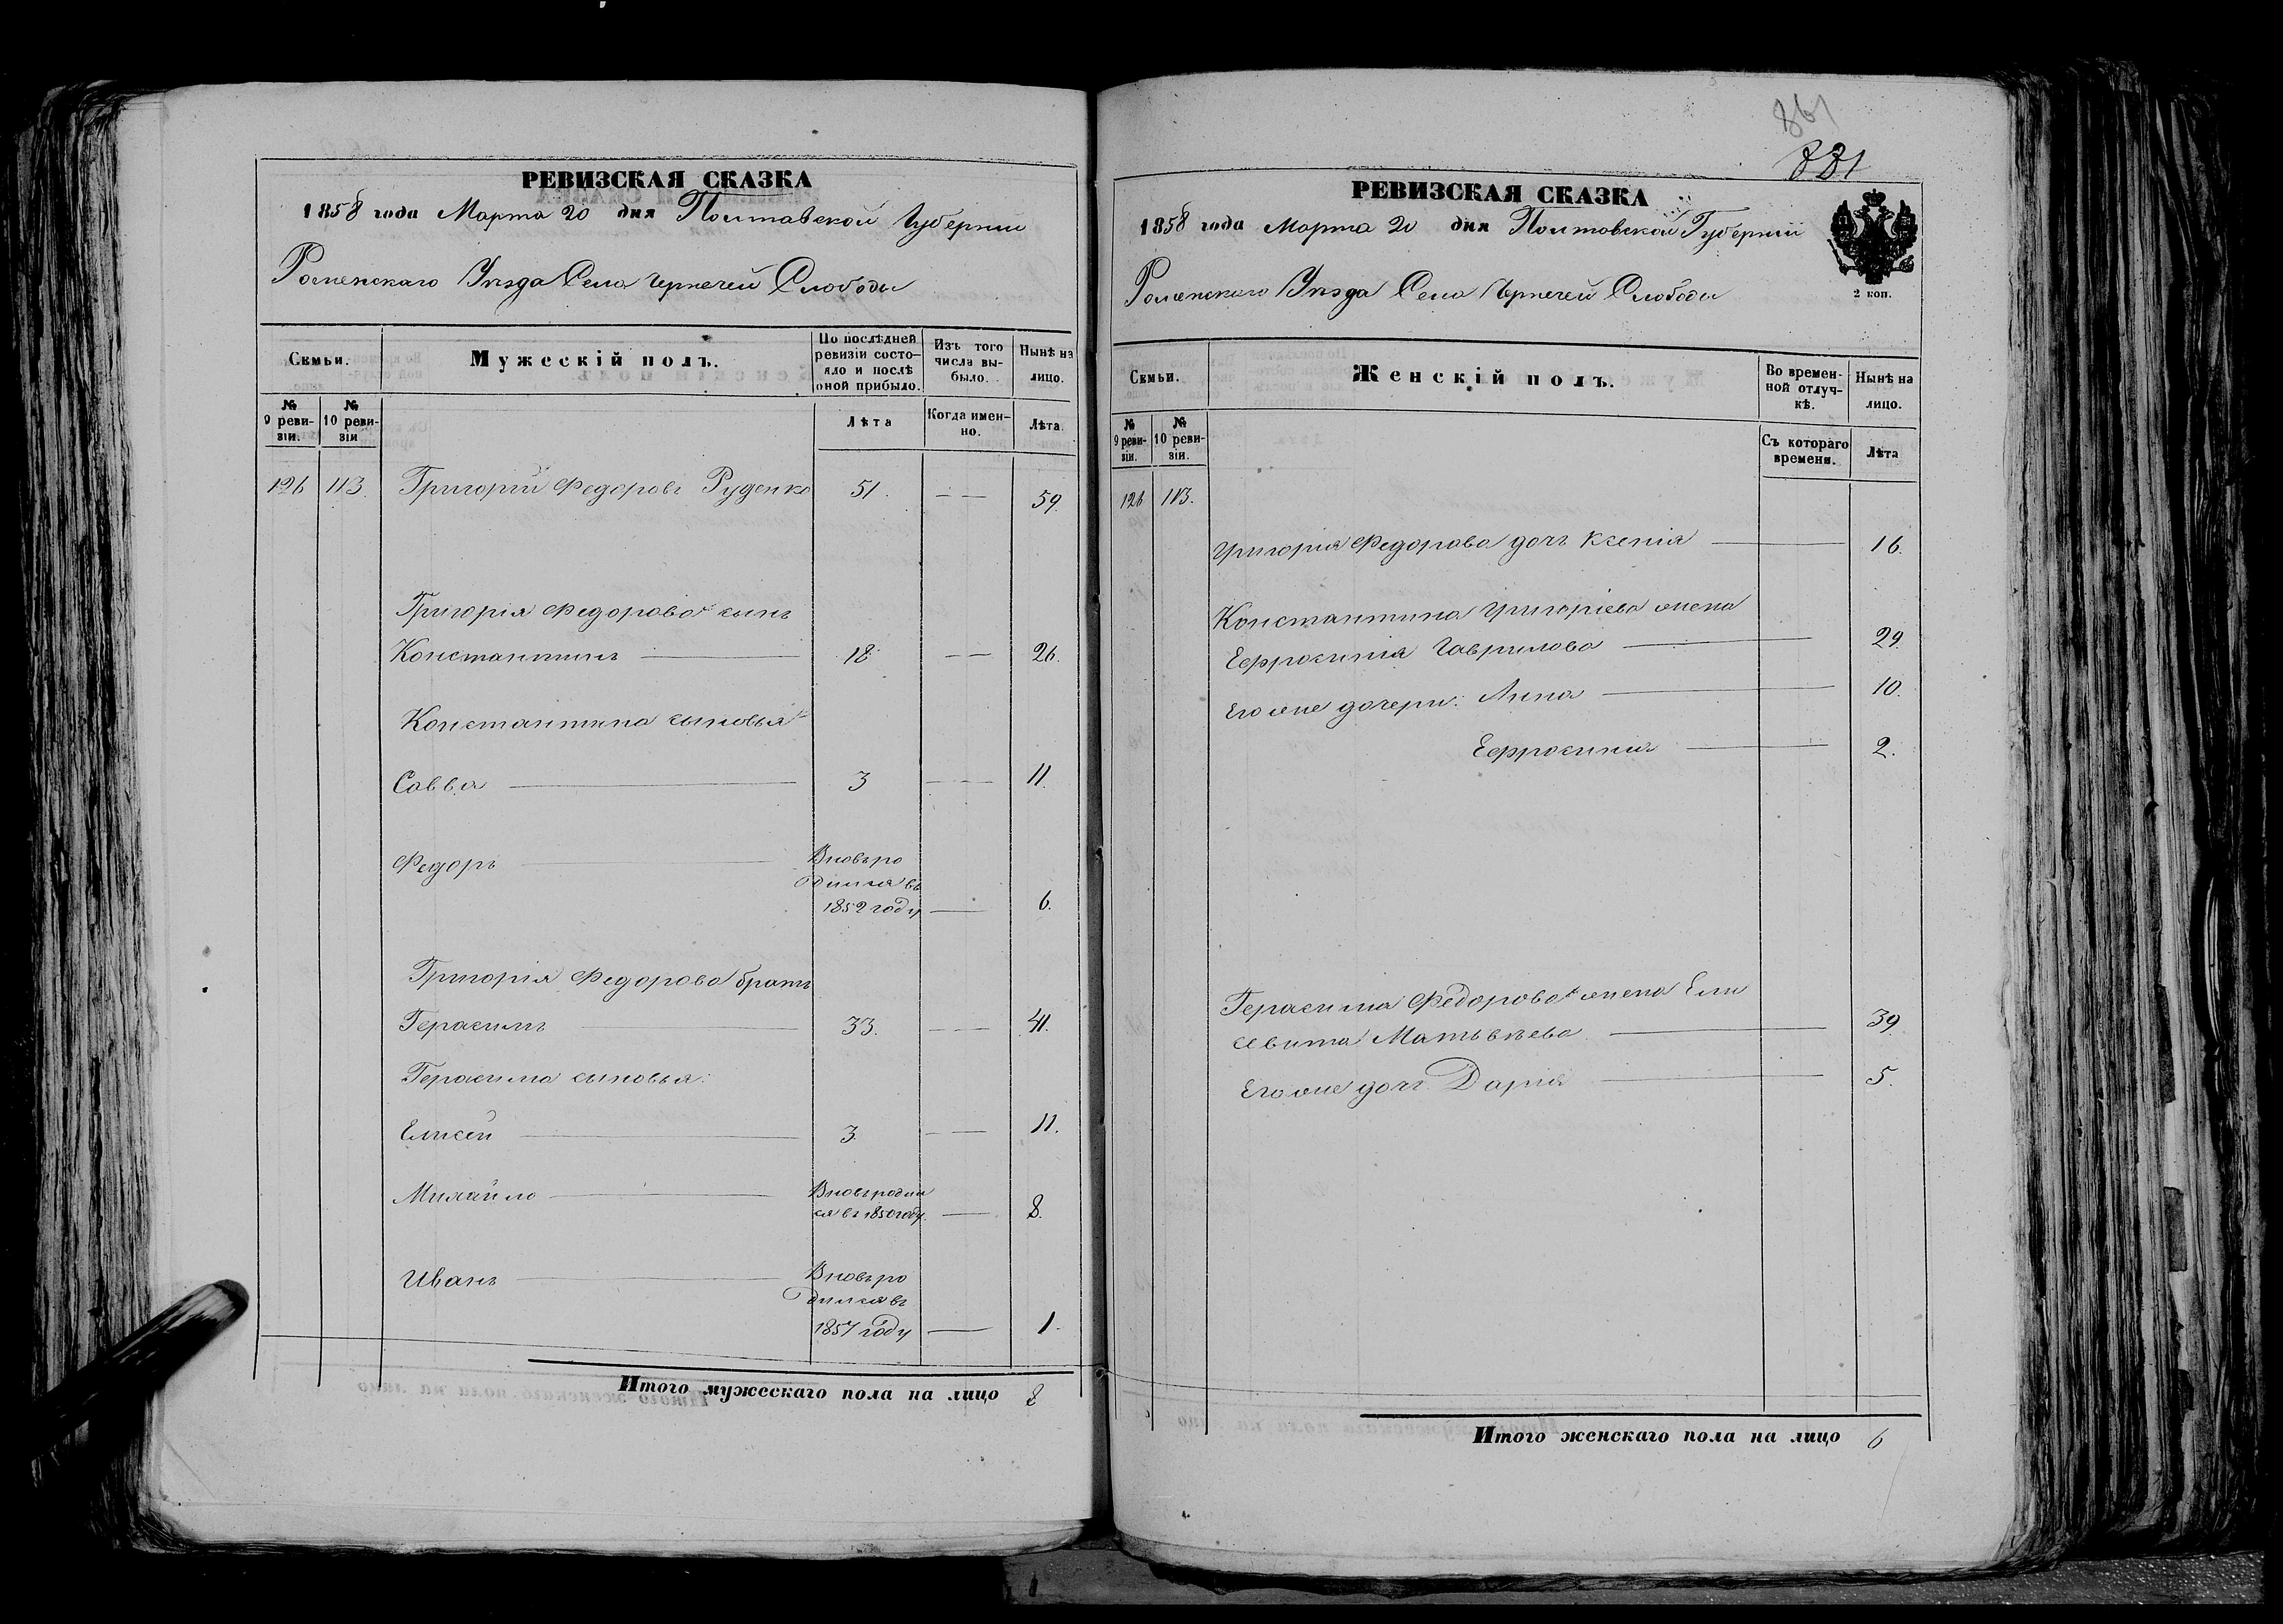 РЕВИЗСКАЯ СКАЗКА
1858 года Марта 20 дня Полтавской Губерніи
Роменскаго Уѣзда Села Чернечей Слободы
Семьи.
Мужескій полъ.
По послѣдней ревизіи состояло и послѣ оной прибыло.
Изъ того числа выбыло.
Нынѣ на лицо.
№ 9 ревизіи.
№ 10 ревизіи
Лѣта
Когда именно.
Лѣта.
126 113. Григорій Федоровъ Руденко 51. — — 59.
Григорія Федорова сынъ
Константинъ 18. — — 26.
Константина сыновья
Савва 3 — — 11.
Федоръ Вновь ро
дился въ
1852 году — 6.
Григорія Федорова братъ
Герасимъ 33. — — 41.
Герасима сыновья:
Елисей 3. — — 11.
Михайло Вновь родил
ся въ 1850 году. — 8.
Иванъ Вновь ро
дился въ
1857 году — 1.
Итого мужескаго пола на лицо 8
861
331
РЕВИЗСКАЯ СКАЗКА
1858 года Марта 20 дня Полтавской Губерніи
Роменскаго Уѣзда Села Чернечей Слободы
2 коп.
Семьи.
Женскій полъ.
Во временной отлучкѣ.
Нынѣ на лицо.
№ 9 ревизіи.
№ 10 ревизіи.
Съ котораго времени.
Лѣта
126 113.
Григорія Федорова дочь Ксенія 16.
Константина Григоріева жена
Ефросинія Гаврилова 29.
Его же дочери: Анна 10.
Ефросинія 2.
Герасима Федорова жена Ели
савита Матвѣева 39
Его же дочь Дарія 5.
Итого женскаго пола на лицо 6